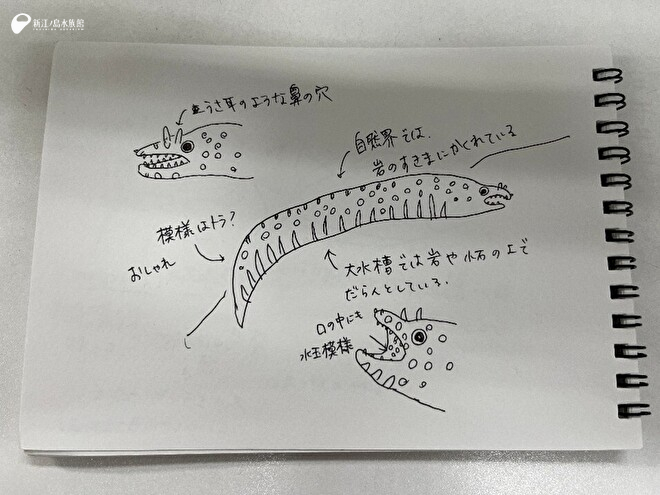 新江ノ島水族館
ENOSHIMA AQUARIUM
うさ耳のような鼻の穴
自然界では、
岩のすきまにかくれている
模様はトラ?
おしゃれ
大水槽では岩や小石の上で
だらんとしている.
口の中にも
水玉模様